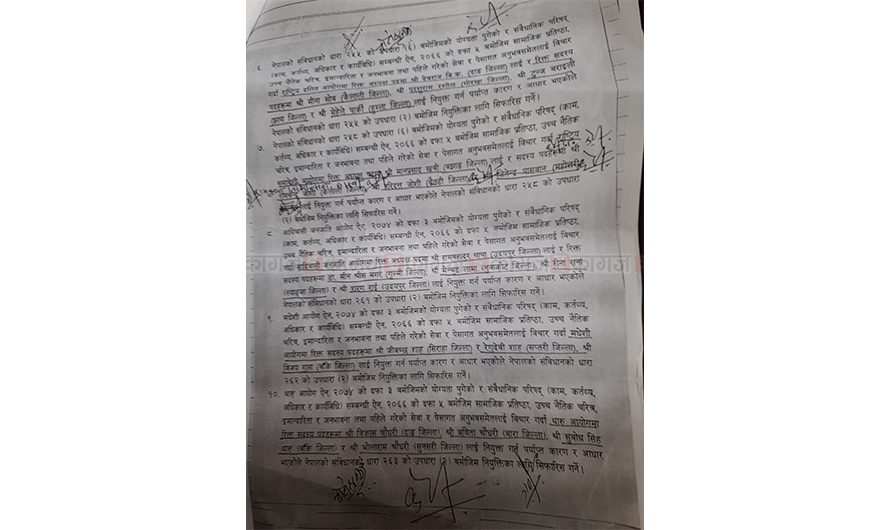 ६. नेपालको संविधानको धारा २५५ को उपधारा (६) बमोजिमको योग्यता पुगेको र संवैधानिक परिषद्
(काम, कर्तव्य, अधिकार र कार्यविधि) सम्बन्धी ऐन, २०६६ को दफा ५ बमोजिम सामाजिक प्रतिष्ठा,
उच्च नैतिक चरित्र, इमान्दारिता र जनभावना तथा पहिले गरेको सेवा र पेसागत अनुभवसमेतलाई विचार
गर्दा राष्ट्रिय दलित आयोगमा रिक्त अध्यक्ष पदमा श्री देवराज बि.क. (दाङ जिल्ला) लाई र रिक्त सदस्य
पदहरूमा श्री मीना सोब (कैलाली जिल्ला), श्री परशुराम रम्तेल (गोरखा जिल्ला), श्री
(झापा जिल्ला) र श्री मेहेले पार्की (हुम्ला जिल्ला) लाई नियुक्त गर्न पर्याप्त कारण र आधार भएकोले
नेपालको संविधानको धारा २५५ को उपधारा (२) बमोजिम नियुक्तिका लागि सिफारिस गर्ने।
७. नेपालको संविधानको धारा २५८ को उपधारा (६) बमोजिमको योग्यता पुगेको र संवैधानिक परिषद् (काम,
कर्तव्य, अधिकार र कार्यविधि) सम्बन्धी ऐन, २०६६ को दफा ५ बमोजिम सामाजिक प्रतिष्ठा, उच्च नैतिक
चरित्र, इमान्दारिता र जनभावना तथा पहिले गरेको सेवा र पेसागत अनुभवसमेतलाई विचार गर्दा राष्ट्रिय
समावेशी आयोगमा रिक्त अध्यक्ष पदमा श्री मानप्रसाद खत्री (बझाङ जिल्ला) लाई र सदस्य पदहरूमा श्री
जोशी (कैलाली जिल्ला), श्री हरिदत्त जोशी (बैतडी जिल्ला), श्री जितेन्द्र पासवान (महोत्तरी
लाई नियुक्त गर्न पर्याप्त कारण र आधार भएकोले नेपालको संविधानको धारा २५८ को उपधारा
(२) बमोजिम नियुक्तिका लागि सिफारिस गर्ने।
८. आदिवासी जनजाति आयोग ऐन, २०७४ को दफा ३ बमोजिमको योग्यता पुगेको र संवैधानिक परिषद्
(काम, कर्तव्य, अधिकार र कार्यविधि) सम्बन्धी ऐन, २०६६ को दफा ५ बमोजिम सामाजिक प्रतिष्ठा,
उच्च नैतिक चरित्र, इमान्दारिता र जनभावना तथा पहिले गरेको सेवा र पेसागत अनुभवसमेतलाई विचार
गर्दा आदिवासी जनजाति आयोगमा रिक्त अध्यक्ष पदमा श्री रामबहादुर थापा (उदयपुर जिल्ला) लाई र रिक्त
सदस्य पदहरूमा डा. मीन श्रीस मगर (गुल्मी जिल्ला), श्री मेन्चङ लामा (नुवाकोट जिल्ला), श्री रीता राना
(स्याङ्जा जिल्ला) र श्री शरण राई (उदयपुर जिल्ला) लाई नियुक्त गर्न पर्याप्त कारण र आधार भएकोले
नेपालको संविधानको धारा २६१ को उपधारा (२) बमोजिम नियुक्तिका लागि सिफारिस गर्ने।
९. मधेशी आयोग ऐन, २०७४ को दफा ३ बमोजिमको योग्यता पुगेको र संवैधानिक परिषद् (काम, कर्तव्य,
अधिकार र कार्यविधि) सम्बन्धी ऐन, २०६६ को दफा ५ बमोजिम सामाजिक प्रतिष्ठा, उच्च नैतिक
चरित्र, इमान्दारिता र जनभावना तथा पहिले गरेको सेवा र पेसागत अनुभवसमेतलाई विचार गर्दा मधेशी
आयोगमा रिक्त सदस्य पदहरूमा श्री जीवच्छ शाह (सिराहा जिल्ला) र रेणुदेवी शाह (सप्तरी जिल्ला), श्री
विजय गुप्ता (बाँके जिल्ला) लाई नियुक्त गर्न पर्याप्त कारण र आधार भएकोले नेपालको संविधानको धारा
२६२ को उपधारा (२) बमोजिम नियुक्तिका लागि सिफारिस गर्ने।
१०. थारू आयोग ऐन, २०७४ को दफा ३ बमोजिमको योग्यता पुगेको र संवैधानिक परिषद् (काम, कर्तव्य,
अधिकार र कार्यविधि) सम्बन्धी ऐन, २०६६ को दफा ५ बमोजिम सामाजिक प्रतिष्ठा, उच्च नैतिक चरित्र,
इमान्दारिता र जनभावना तथा पहिले गरेको सेवा र पेसागत अनुभवसमेतलाई विचार गर्दा थारू आयोगमा
रिक्त सदस्य पदहरूमा श्री विकास चौधरी (दाङ जिल्ला), श्री बबिता चौधरी (बारा जिल्ला), श्री सुबोध सिंह
थारू (बाँके जिल्ला) र श्री भोलाराम चौधरी (सुनसरी जिल्ला) लाई नियुक्त गर्न पर्याप्त कारण र आधार
भएकोले नेपालको संविधानको धारा २६३ को उपधारा (२) बमोजिम नियुक्तिका लागि सिफारिस गर्ने।